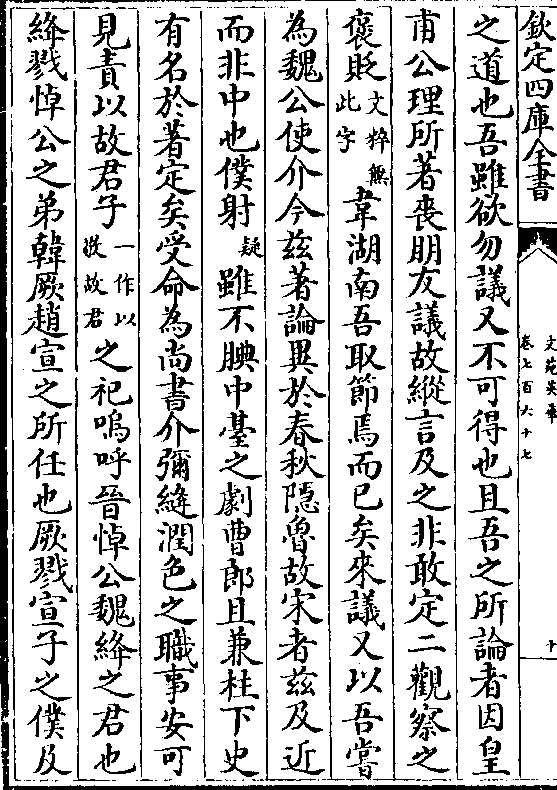 欽定四庫全書
文苑英華
卷七百六十七
十
之道也吾雖欲勿議又不可得也且吾之所論者因皇
甫公理所著喪朋友議故縱言及之非敢定二觀察之
褒貶文粹無此字韋湖南吾取節焉而已矣來議又以吾嘗
為魏公使介今兹著論異於春秋隱魯故宋者兹及近
而非中也僕射疑雖不腆中臺之劇曹郎且兼柱下史
有名於著定矣受命為尚書介彌縫潤色之職事安可
見責以故君子一作以微故君之祀嗚呼晉悼公魏絳之君也
絳戮悼公之弟韓厥趙宣之所任也厥戮宣子之僕及